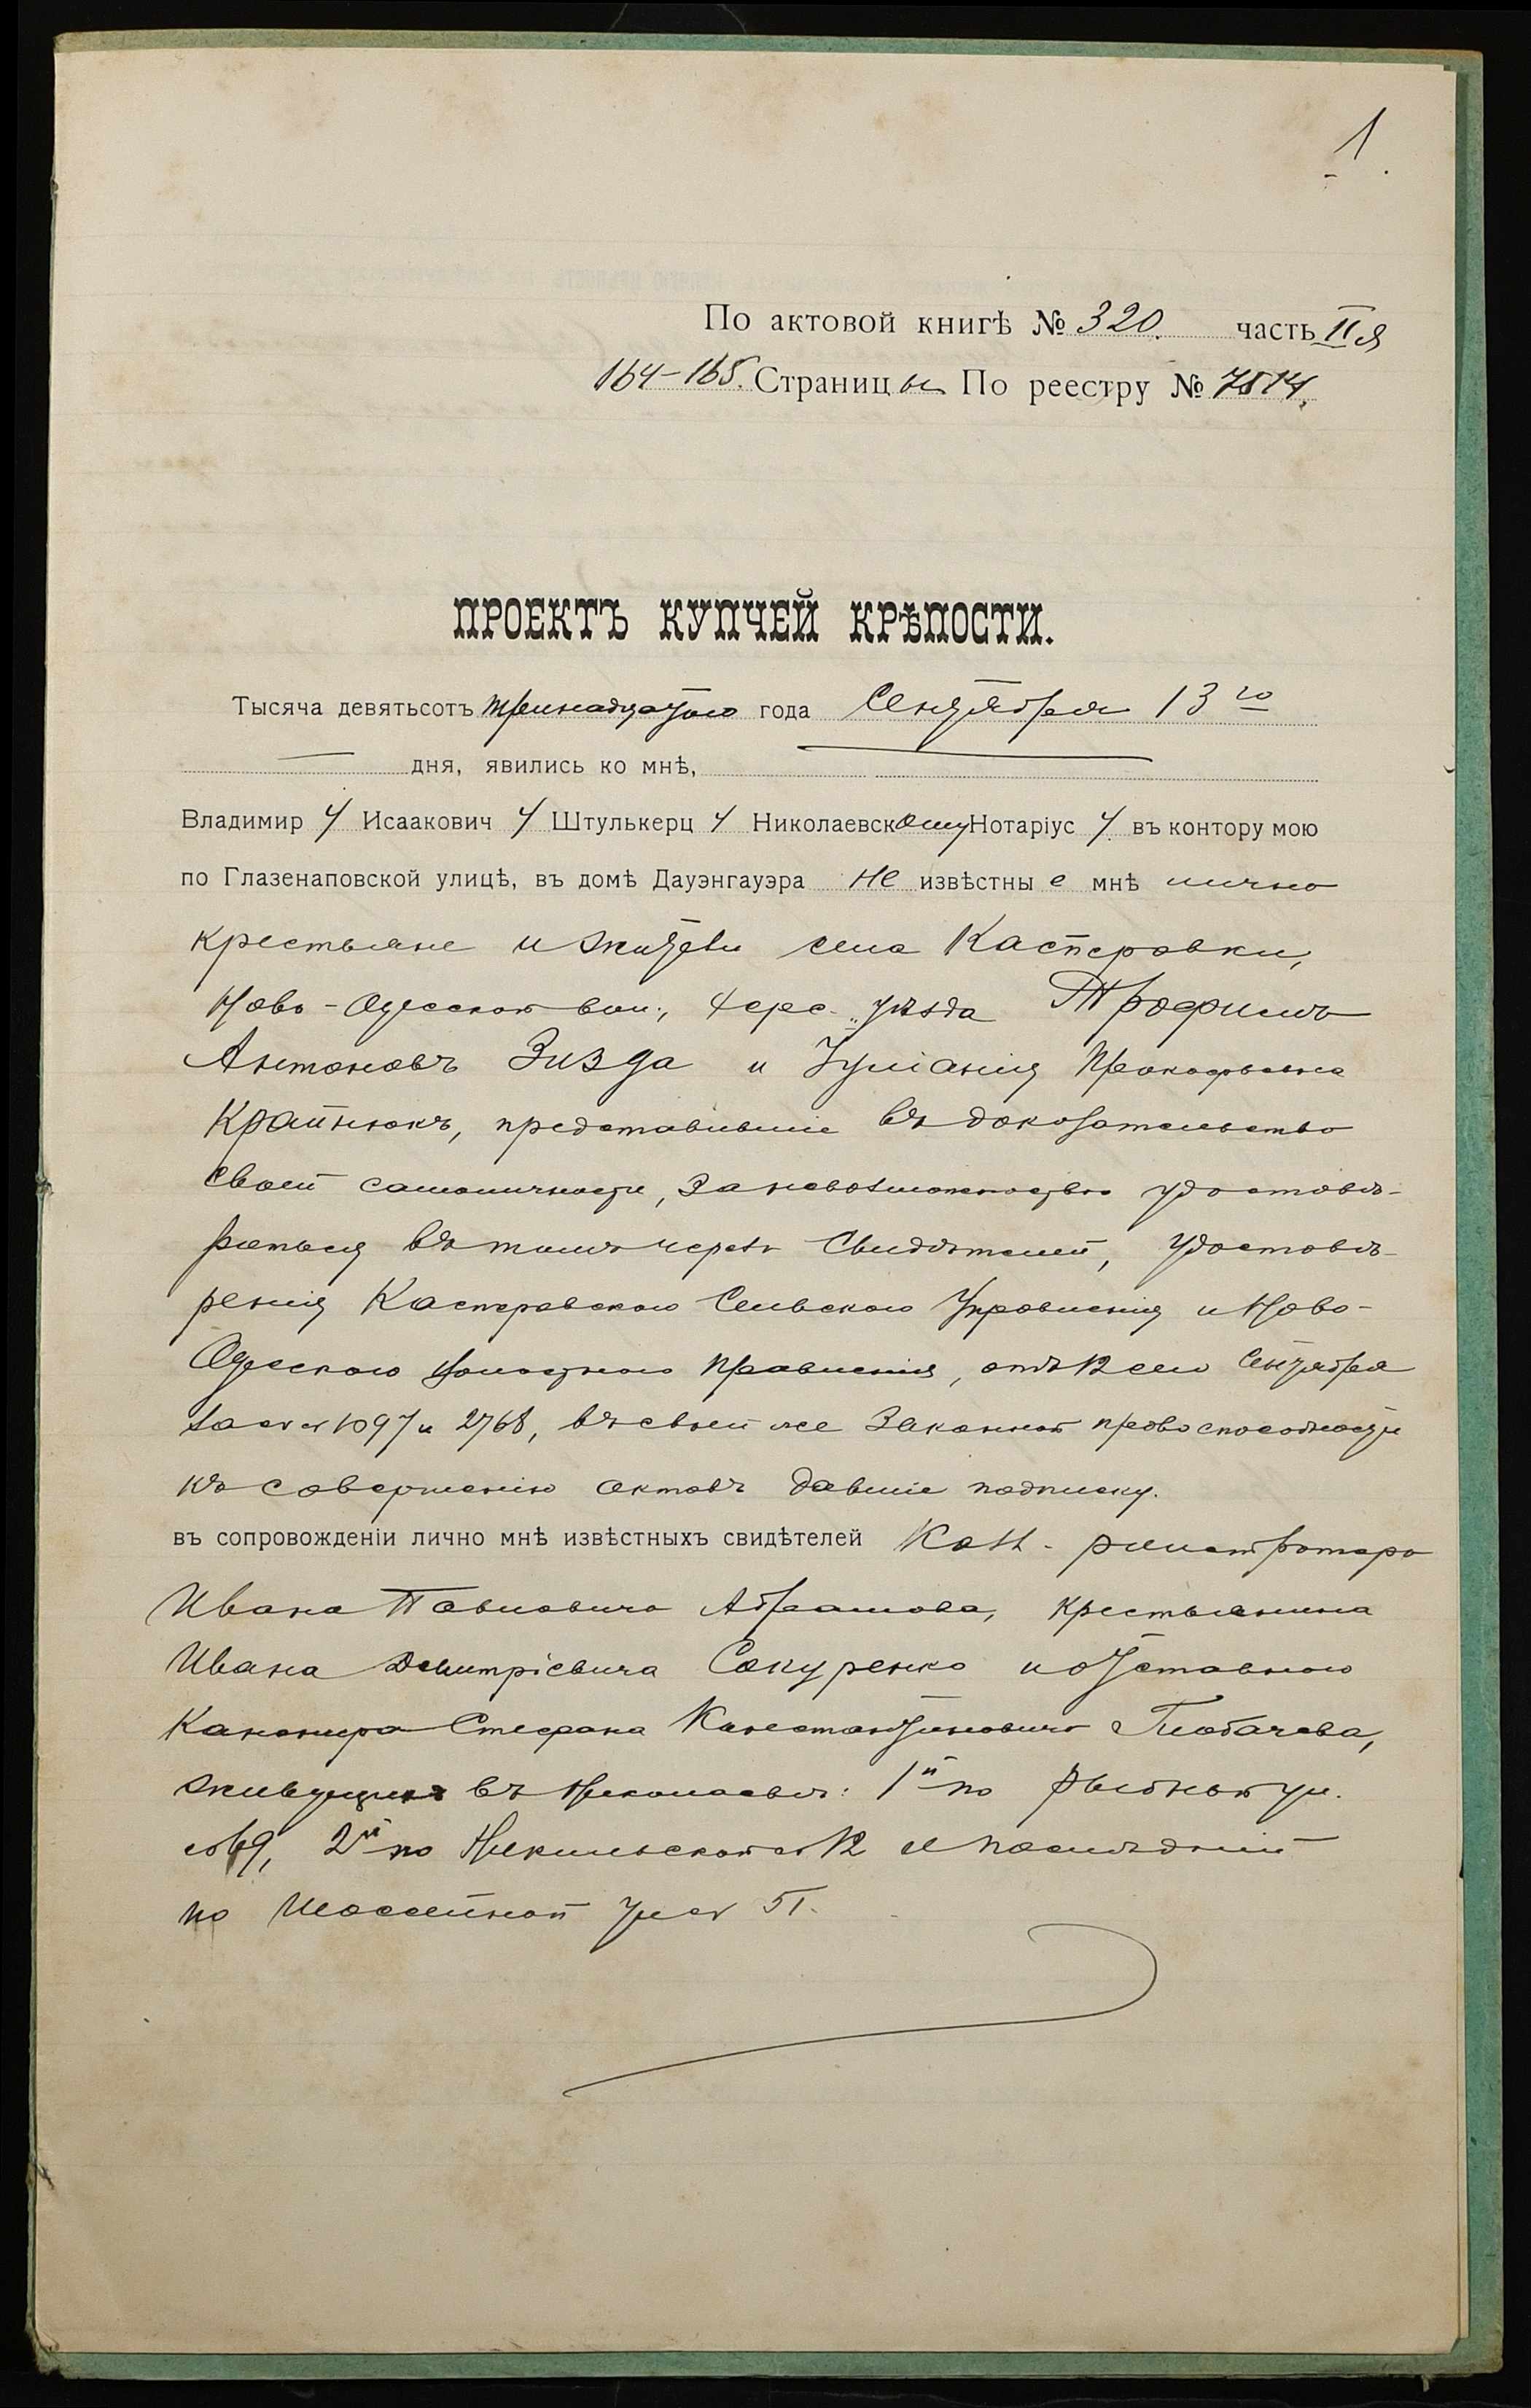 1.
По актовой книгѣ № 320. часть II я
164-165. Страницы По реестру № 7514.
ПРОЕКТЪ КУПЧЕЙ КРѢПОСТИ.
Тысяча девятьсотъ тринадцатого года Сентября 13 го
дня, явились ко мнѣ,
Владимир у Исаакович у Штулькерц у Николаевскому Нотаріус у въ контору мою
по Глазенаповской улицѣ, въ домѣ Дауэнгауэра не извѣстны е мнѣ лично
крестьяне и жители села Касперовки,
Ново-Одесской вол., Херс. уѣзда Трофимъ
Антоновъ Зизда и Іуліанія Прокофьевна
Крайнюкъ, представившіе въ доказательство
своей самоличности, за невозможностью удостовѣ-
риться въ томъ черезъ свидѣтелей, удостовѣ-
ренія Касперовского Сельского Управленія и Ново-
Одесского Волостного Правленія, отъ 12 сего Сентября
за №№ 1097 и 2768, въ своей же законной правоспособности
къ совершенію актовъ давшіе подписку.
въ сопровожденіи лично мнѣ извѣстныхъ свидѣтелей Колл. регистратора
Ивана Павловича Абрамова, крестьянина
Ивана Дмитріевича Сокуренко и отставного
Канонира Стефана Константиновича Глобачева,
живущихъ въ Николаевѣ: 1й по Рыбной ул.
№ 69, 2й по Никольской № 12 и послѣдній
по Шоссейной ул № 51.